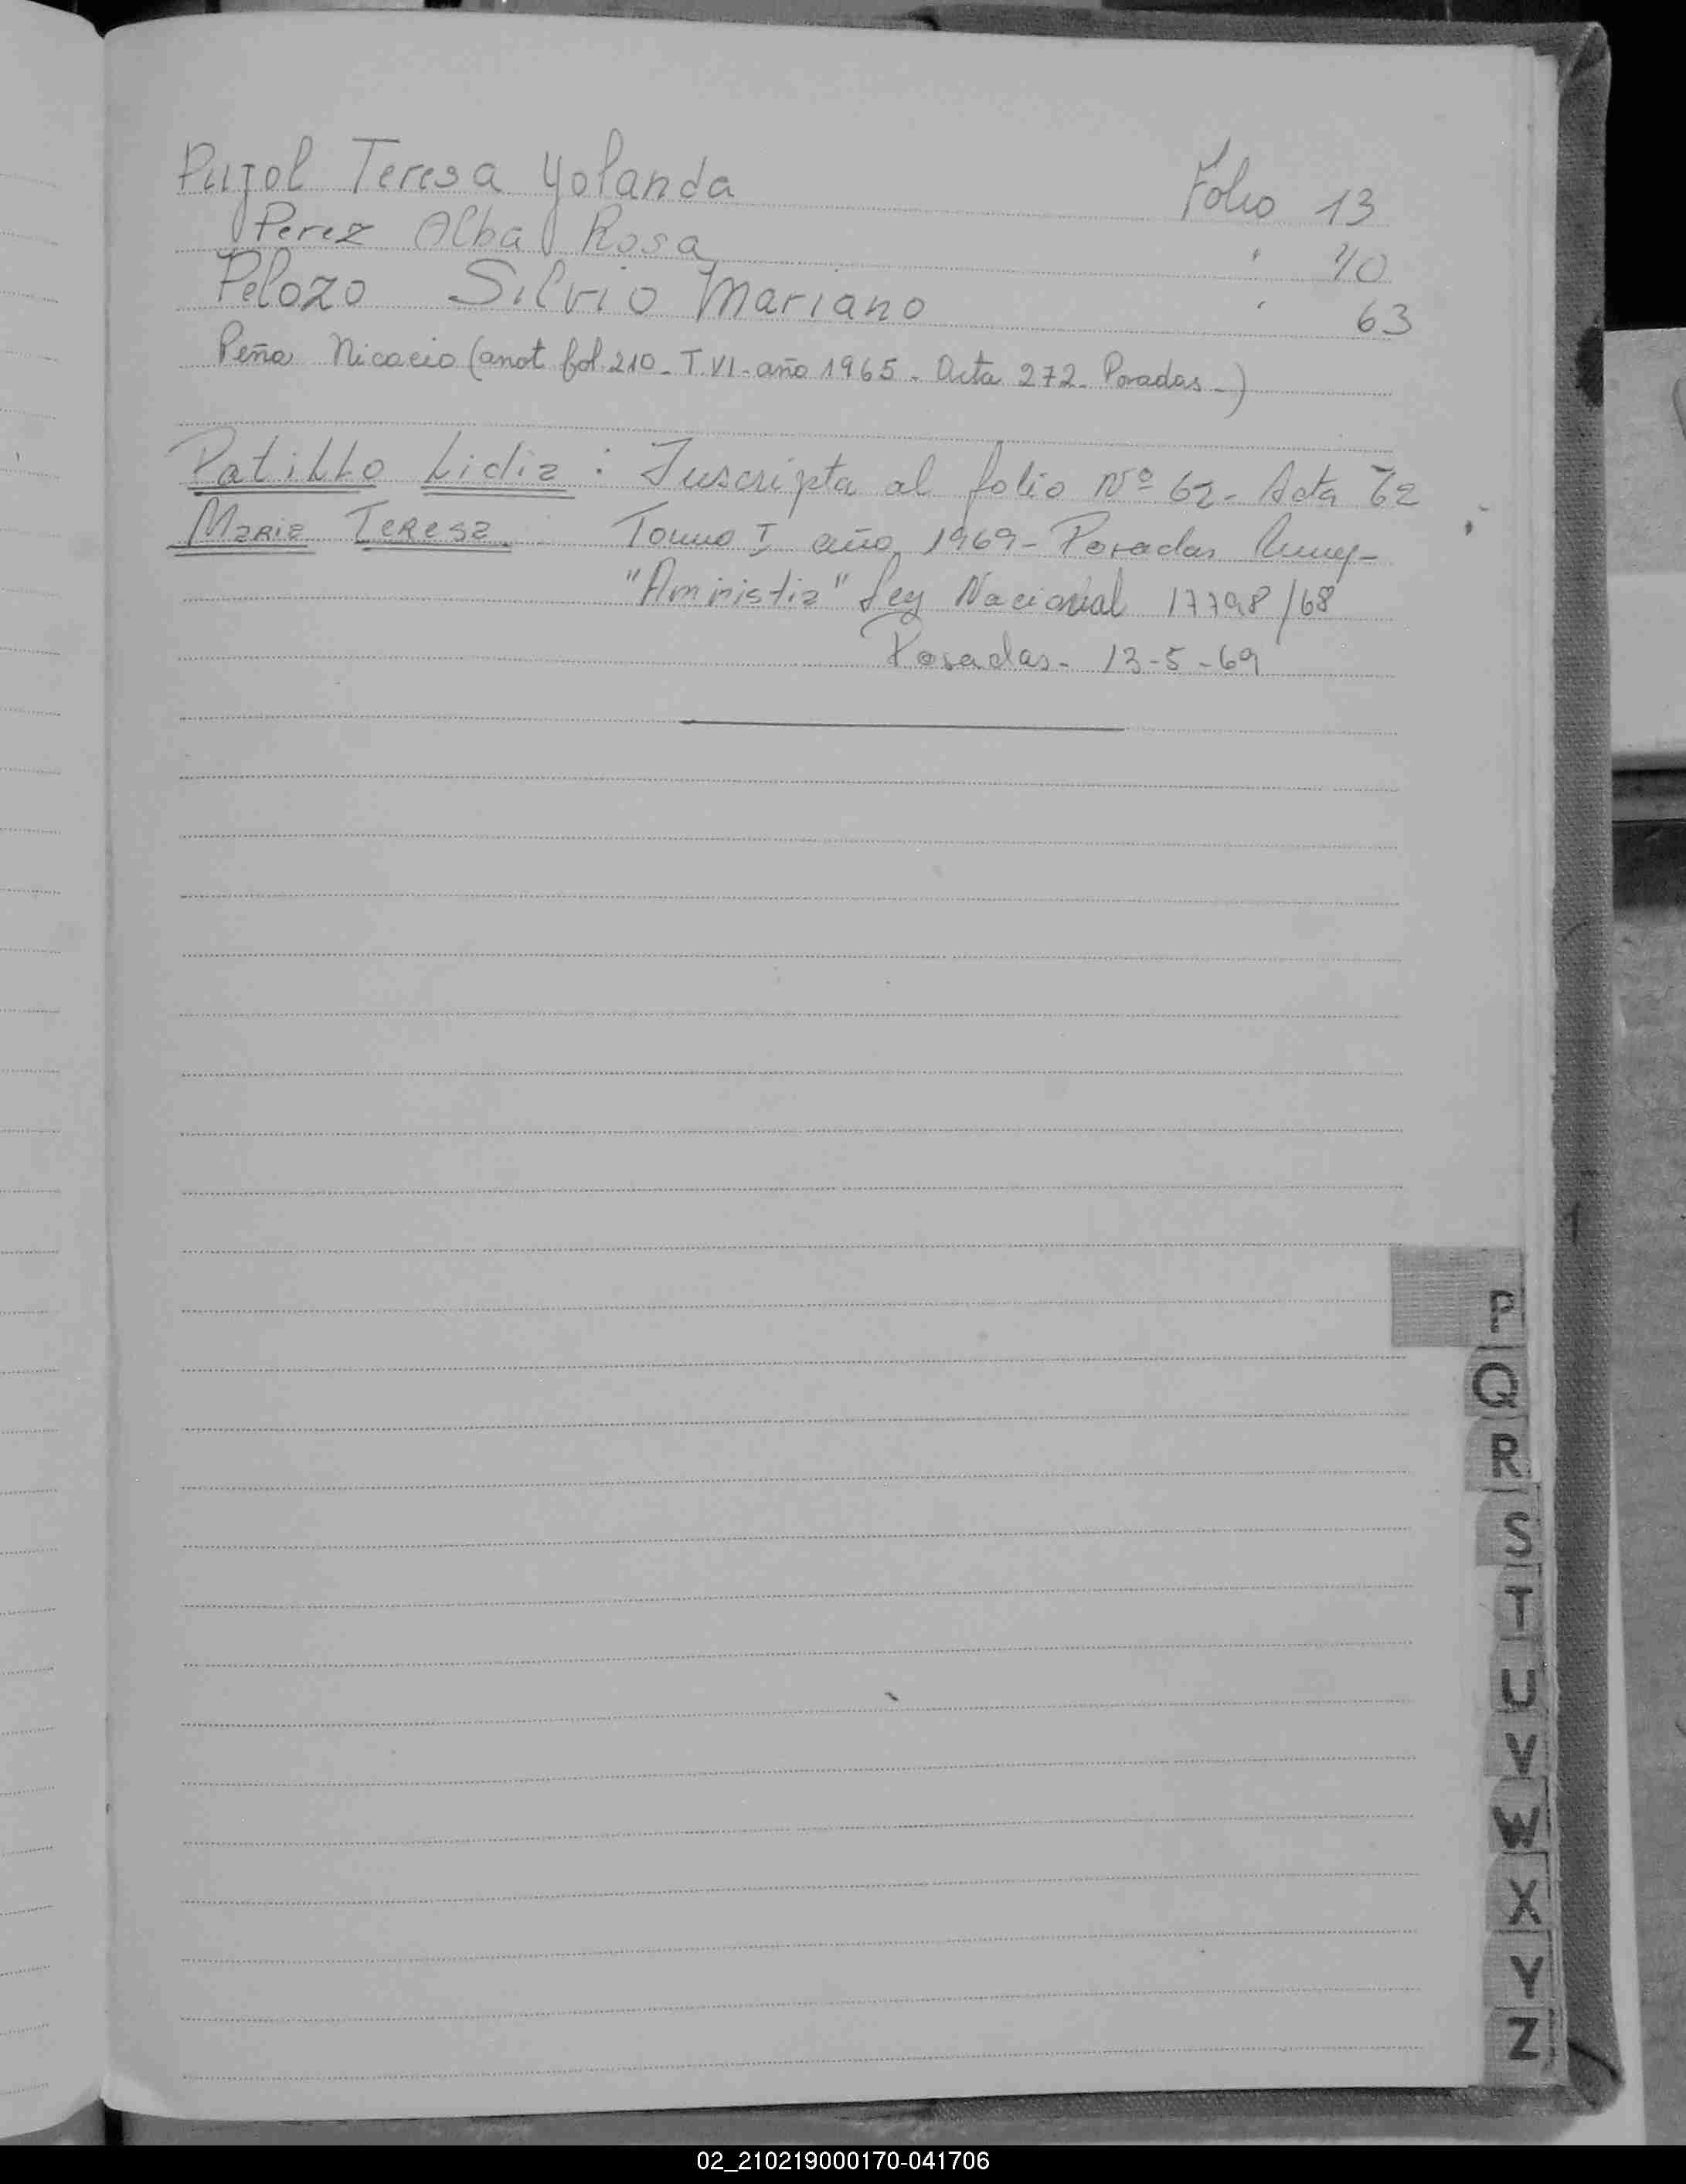 Pujol Teresa Yolanda Folio 13
Perez Alba Rosa " 40
Pelozo Silvio Mariano " 63
Peña Nicacio (anot fol. 210 - T. VI - año 1965 - Acta 272 - Posadas -)
Patillo Lidia : Inscripta al folio Nº 62 - Acta 62
Maria Teresa. Tomo I año 1969 - Posadas
"Amnistia" Ley Nacional 17798/68
Posadas - 13-5-69
P
Q
R
S
T
U
V
W
X
Y
Z
02_210219000170-041706